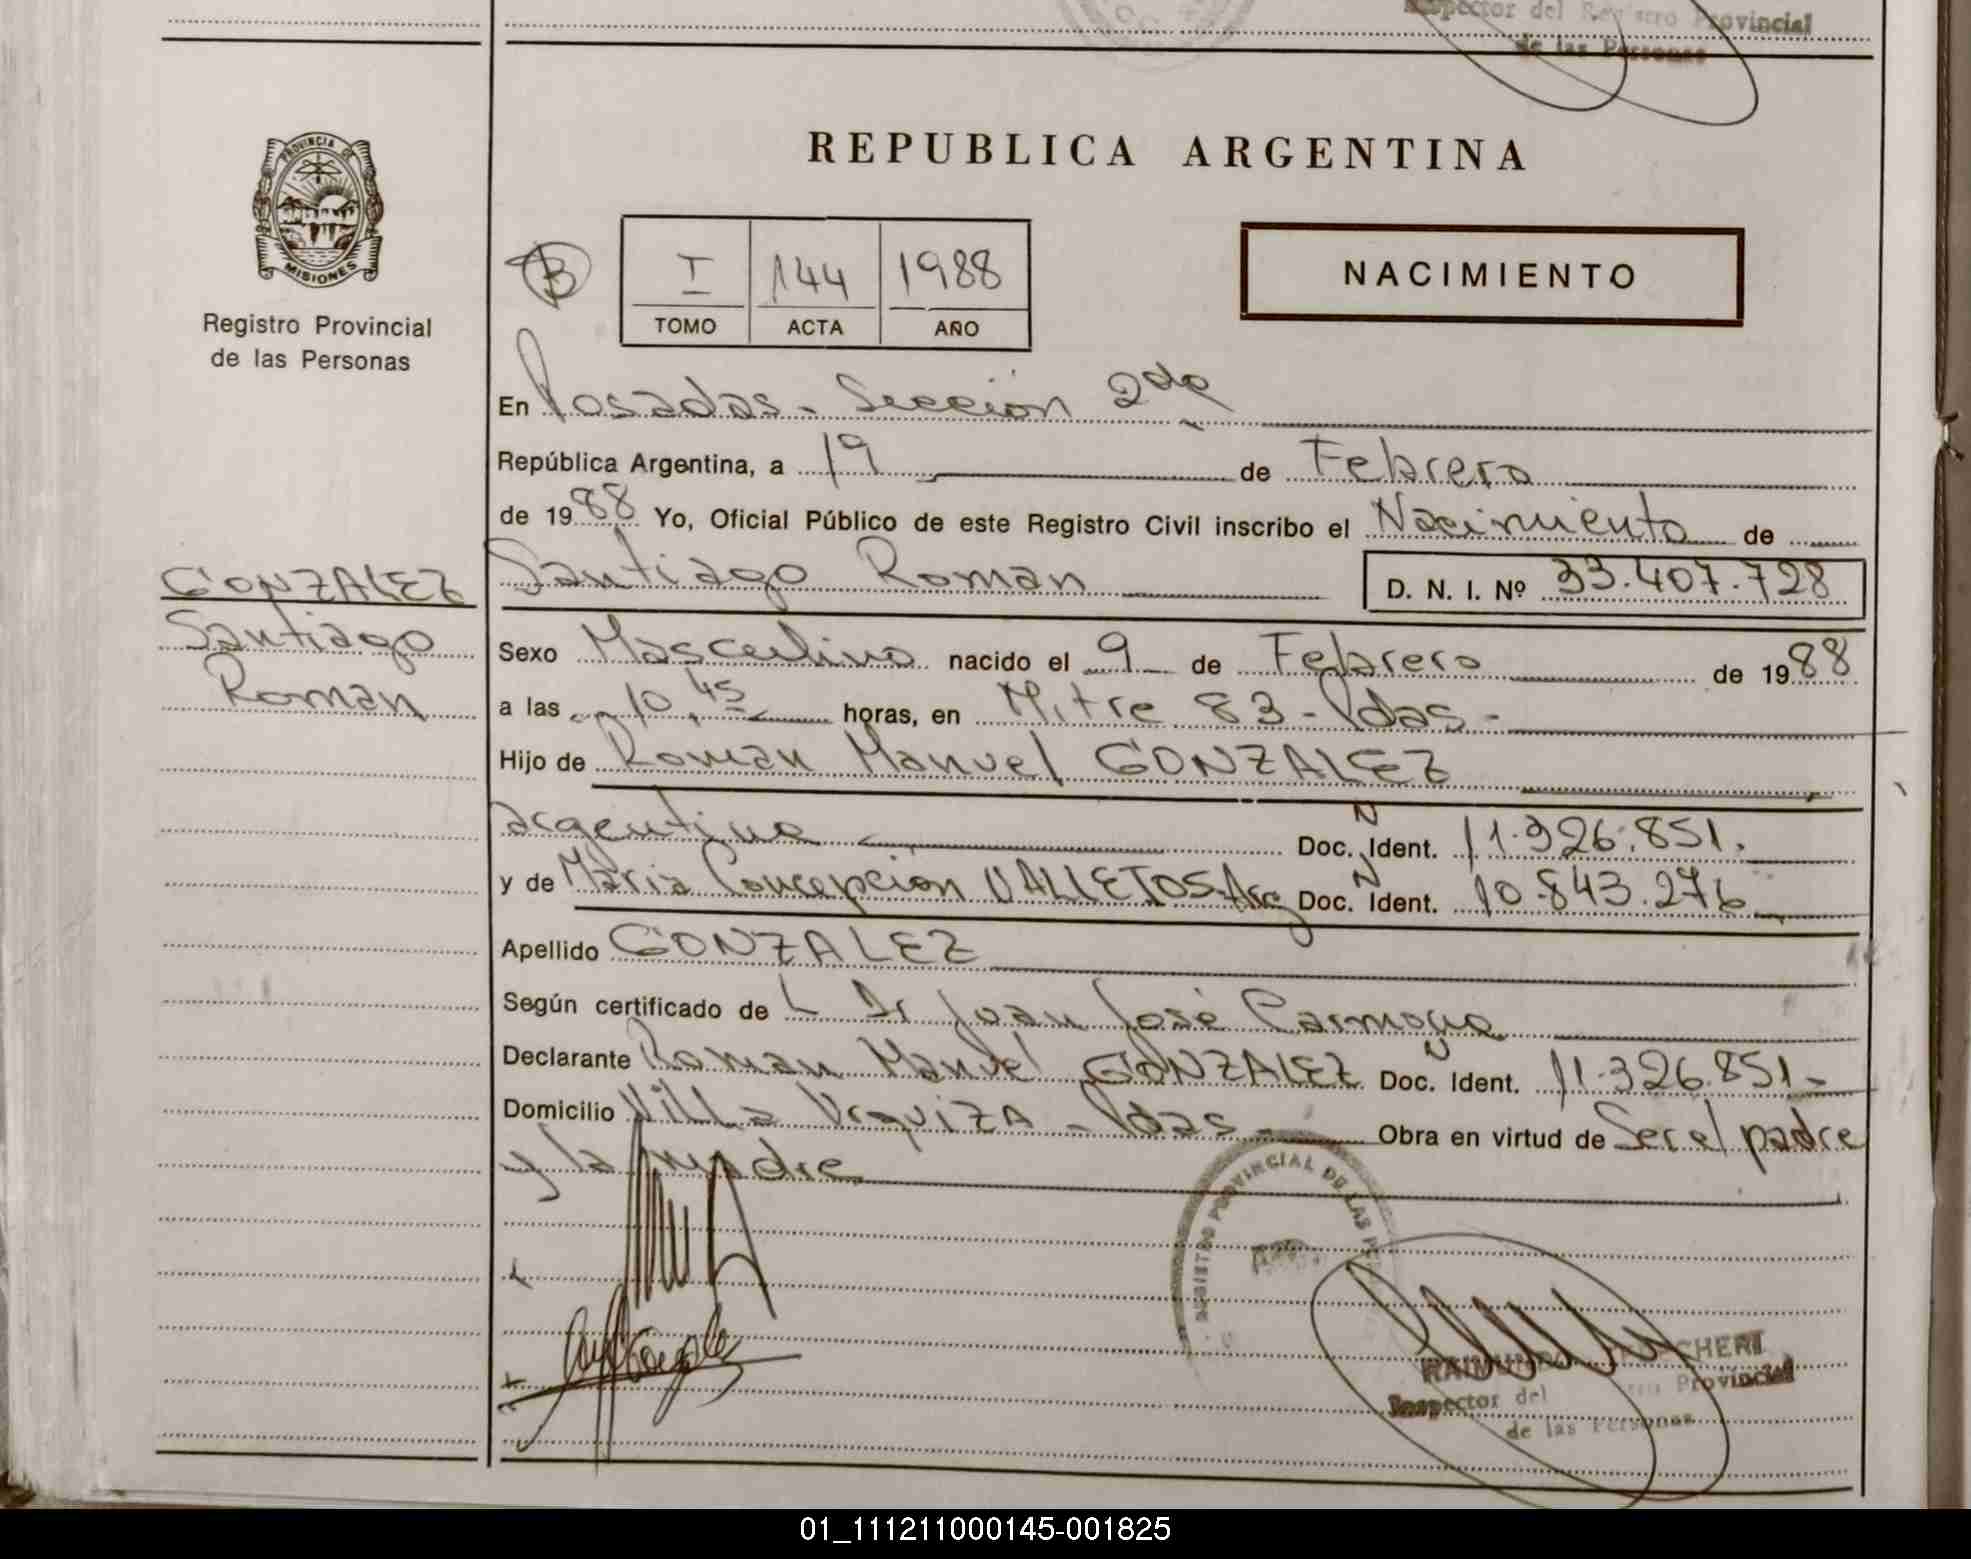 Inspector del Registro Provincial
de las Personas
PROVINCIA DE
MISIONES
Registro Provincial
de las Personas
REPUBLICA ARGENTINA
B
I 144 1988
TOMO ACTA AÑO
NACIMIENTO
En Posadas - Sección 2da
República Argentina, a 19 de Febrero
de 1988 Yo, Oficial Público de este Registro Civil inscribo el Nacimiento de
GONZALEZ
Santiago
Roman
Santiago Roman D. N. I. Nº 33.407.728
Sexo Masculino nacido el 9 de Febrero de 1988
a las 10,45 horas, en Mitre 83 - Pdas -
Hijo de Roman Manuel GONZALEZ
argentino N Doc. Ident. 11.326.851.
y de Maria Concepcion VALLETOS - Arg N Doc. Ident. 10.843.276
Apellido GONZALEZ
Según certificado de L Dr Juan José Carmona
Declarante Roman Manuel GONZALEZ N Doc. Ident. 11.326.851 -
Domicilio Villa Urquiza - Pdas - Obra en virtud de Ser el padre
y la madre
REGISTRO PROVINCIAL DE LAS P
Gonzalez
Inspector del Provincial
de las Personas
01_111211000145-001825